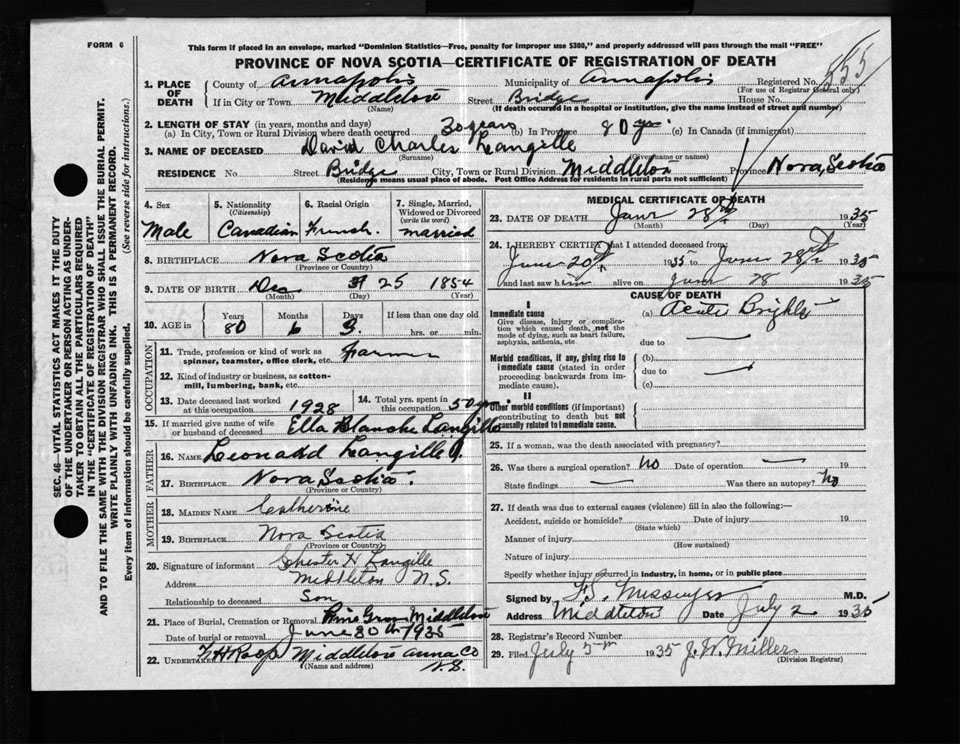 FORM 6
This form if placed in an envelope, marked "Dominion Statistics—Free, penalty for improper use $300," and properly addressed will pass through the mail "FREE"
PROVINCE OF NOVA SCOTIA—CERTIFICATE OF REGISTRATION OF DEATH
555
1. PLACE OF DEATH County of Annapolis Municipality of Annapolis Registered No.
(For use of Registrar General only)
If in City or Town Middleton Street Bridge House No.
(Name) (If death occurred in a hospital or institution, give the name instead of street and number)
2. LENGTH OF STAY (in years, months and days)
(a) In City, Town or Rural Division where death occurred 30 years (b) In Province 80 yr. (c) In Canada (if immigrant)
3. NAME OF DECEASED David Charles Langille
(Surname) (Given name or names)
RESIDENCE No. Street Bridge City, Town or Rural Division Middleton Province Nova Scotia
(Residence means usual place of abode. Post Office Address for residents in rural parts not sufficient)
4. Sex Male
5. Nationality (Citizenship) Canadian
6. Racial Origin French
7. Single, Married, Widowed or Divorced (write the word) married
8. BIRTHPLACE Nova Scotia
(Province or Country)
9. DATE OF BIRTH Dec 25 1854
(Month) (Day) (Year)
10. AGE in Years Months Days If less than one day old
80 6 3 hrs. or min.
OCCUPATION
11. Trade, profession or kind of work as spinner, teamster, office clerk, etc. Farmer
12. Kind of industry or business, as cotton-mill, lumbering, bank, etc.
13. Date deceased last worked at this occupation 1928
14. Total yrs. spent in this occupation 50 yr.
15. If married give name of wife or husband of deceased Ella Blanche Langille
FATHER
16. NAME Leonard Langille
17. BIRTHPLACE Nova Scotia.
(Province or Country)
MOTHER
18. MAIDEN NAME Catherine
19. BIRTHPLACE Nova Scotia
(Province or Country)
20. Signature of informant Chester H Langille
Address Middleton N.S.
Relationship to deceased Son
21. Place of Burial, Cremation or Removal Pine Grove Middleton
Date of burial or removal June 30th 1935
22. UNDERTAKER Roop Middleton Anna Co
(Name and address) N.S.
MEDICAL CERTIFICATE OF DEATH
23. DATE OF DEATH June 28th 1935
(Month) (Day) (Year)
24. I HEREBY CERTIFY that I attended deceased from:
June 20th 1935 to June 28th 1935
and last saw him alive on June 28 1935
CAUSE OF DEATH
I
Immediate cause
Give disease, injury or complication which caused death, not the mode of dying, such as heart failure, asphyxia, asthenia, etc.
(a) Acute Brights
due to
Morbid conditions, if any, giving rise to immediate cause (stated in order proceeding backwards from immediate cause).
(b)
due to
(c)
II
Other morbid conditions (if important) contributing to death but not causally related to immediate cause.
25. If a woman, was the death associated with pregnancy?
26. Was there a surgical operation? No Date of operation — 19
State findings — Was there an autopsy? No
27. If death was due to external causes (violence) fill in also the following:—
Accident, suicide or homicide? Date of injury 19
(State which)
Manner of injury
(How sustained)
Nature of injury
Specify whether injury occurred in industry, in home, or in public place
Signed by F.S. Messenger M.D.
Address Middleton Date July 2 1935
28. Registrar's Record Number
29. Filed July 5th 1935 J.W. Miller
(Division Registrar)
SEC. 46—VITAL STATISTICS ACT MAKES IT THE DUTY
OF THE UNDERTAKER OR PERSON ACTING AS UNDER-
TAKER TO OBTAIN ALL THE PARTICULARS REQUIRED
IN THE "CERTIFICATE OF REGISTRATION OF DEATH"
AND TO FILE THE SAME WITH THE DIVISION REGISTRAR WHO SHALL ISSUE THE BURIAL PERMIT.
WRITE PLAINLY WITH UNFADING INK. THIS IS A PERMANENT RECORD.
Every item of Information should be carefully supplied. (See reverse side for instructions.)